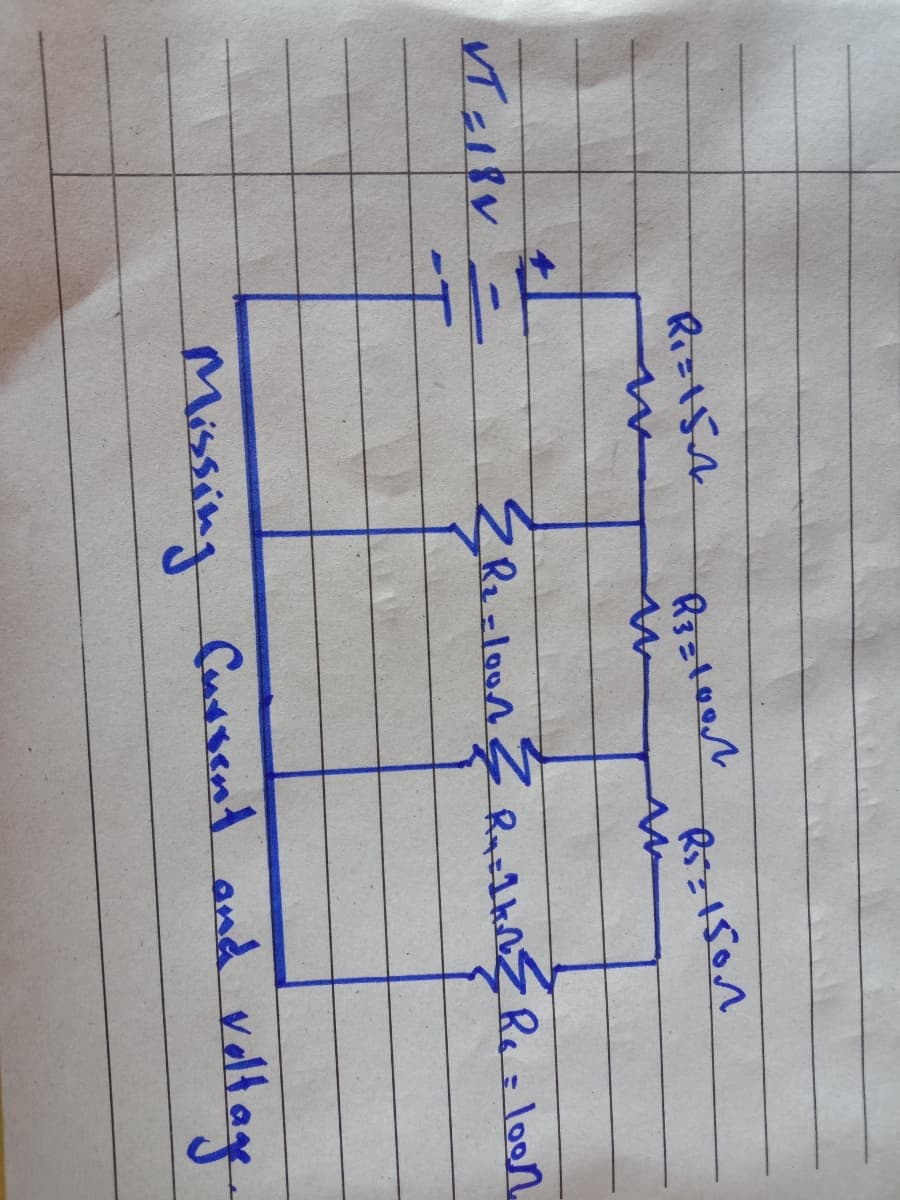 R₁=15Ω R3=100Ω R5=150Ω
+
VT=18V
R₂=100Ω R4=1kΩ R6=100Ω
-
Missing Current and voltage.